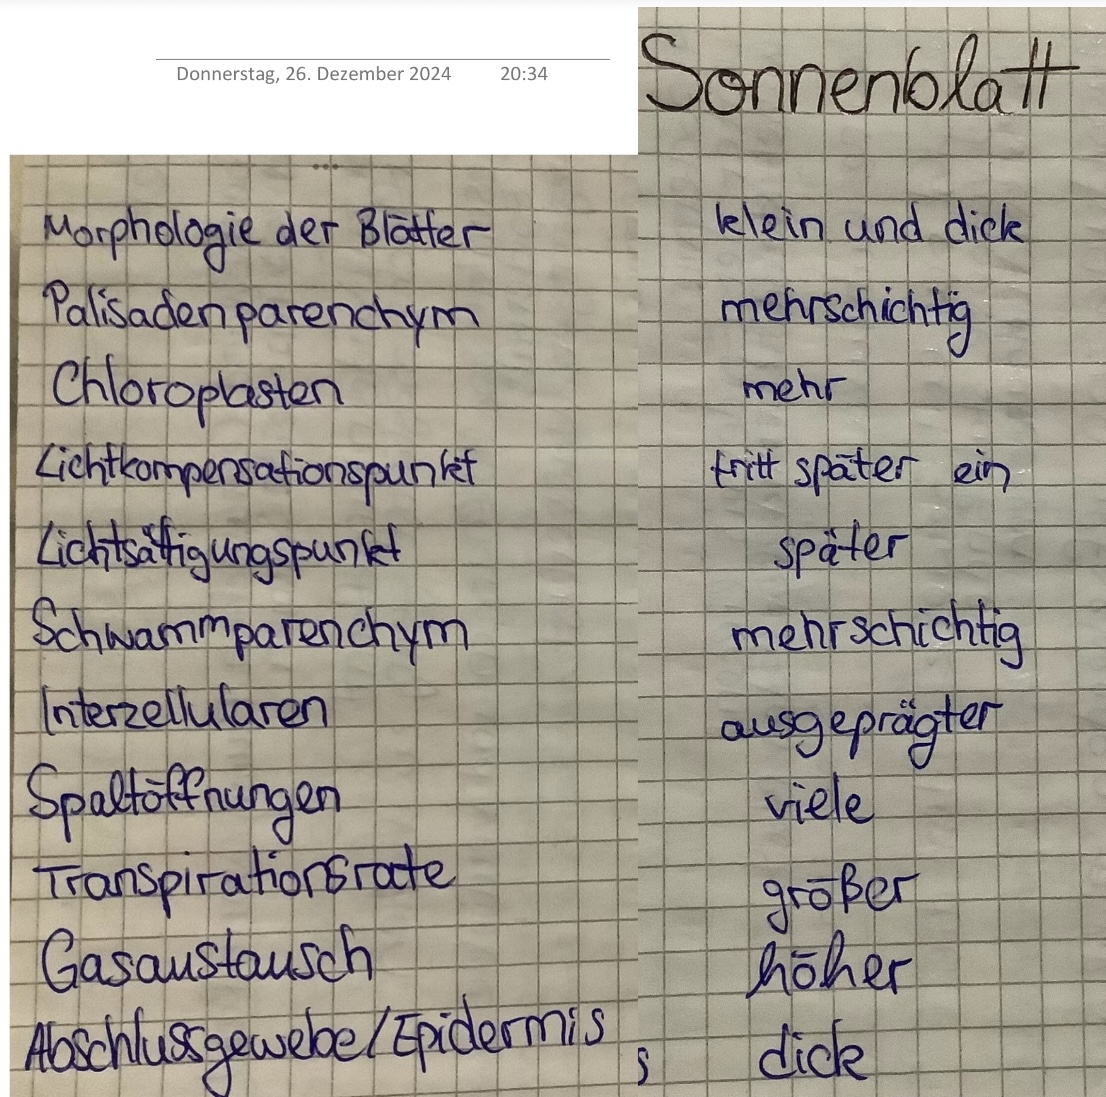 Donnerstag, 26. Dezember 2024 20:34
Sonnenblatt
Morphologie der Blätter klein und dick
Palisadenparenchym mehrschichtig
Chloroplasten mehr
Lichtkompensationspunkt tritt später ein
Lichtsättigungspunkt später
Schwammparenchym mehrschichtig
Interzellularen ausgeprägter
Spaltöffnungen viele
Transpirationsrate größer
Gasaustausch höher
Abschlussgewebe/Epidermis s dick